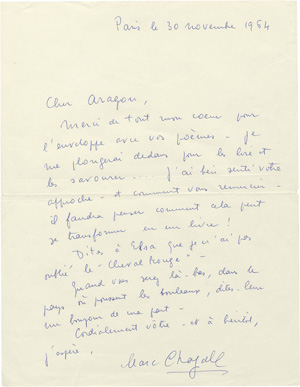 Paris le 30 novembre 1964
Cher Aragon,
Merci de tout mon coeur pour
l'enveloppe avec vos poèmes - je
me plongerai dedans pour les lire et
les savourer ..... J'ai bien senti votre
approche - et comment vous remercier -
il faudra penser comment cela peut
se transformer en un livre !
Dites à Elsa que je n'ai pas
oublié le "Cheval Rouge" -
Quand vous serez là-bas, dans le
pays où poussent les bouleaux, dites-leur
un bonjour de ma part -
Cordialement vôtre - et à bientôt,
j'espère,
Marc Chagall